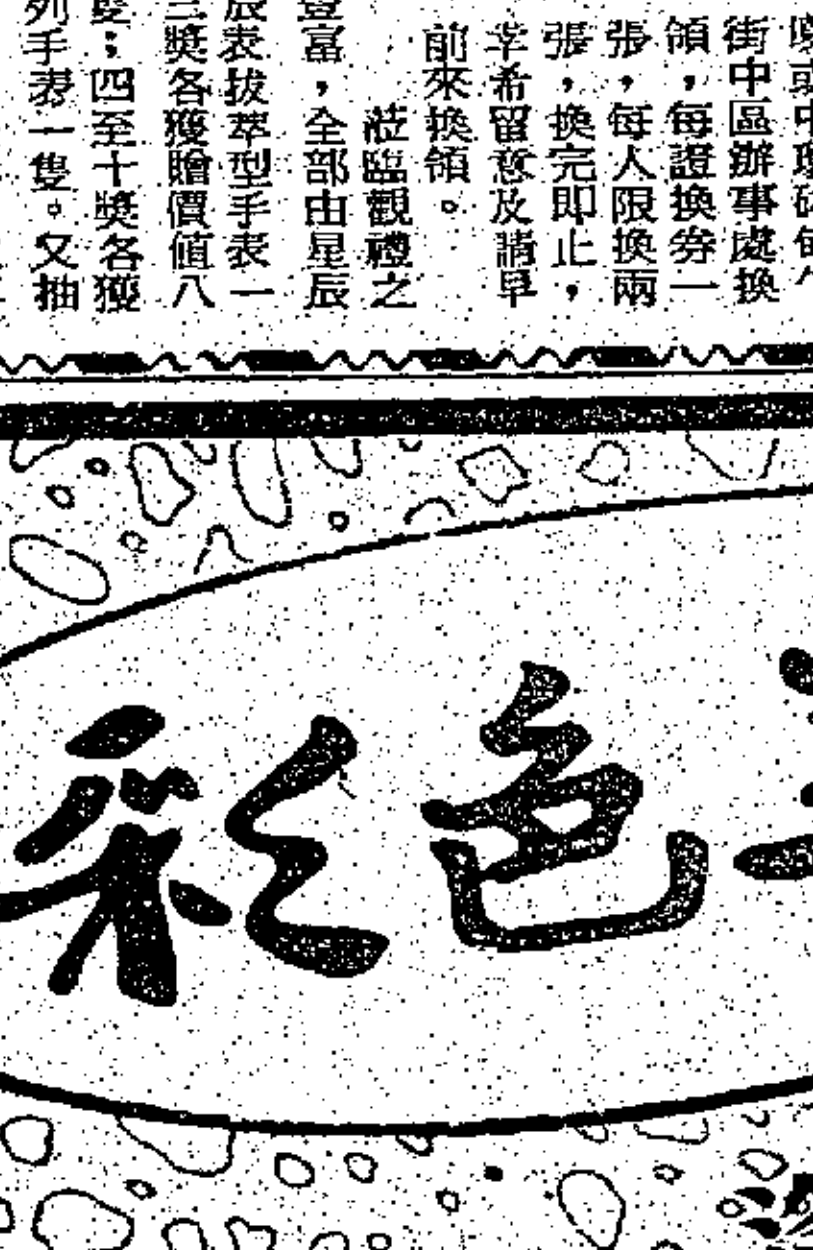 街中區辦事處換
領，每證換券一
張，每人限換兩
張，換完即止，
希留意及請早
前來換領。
蒞臨觀禮之
豐富，全部由星辰
辰表拔萃型手表一
三獎各獲贈價值八
；四至十獎各獲
列手表一隻。又抽
色彩